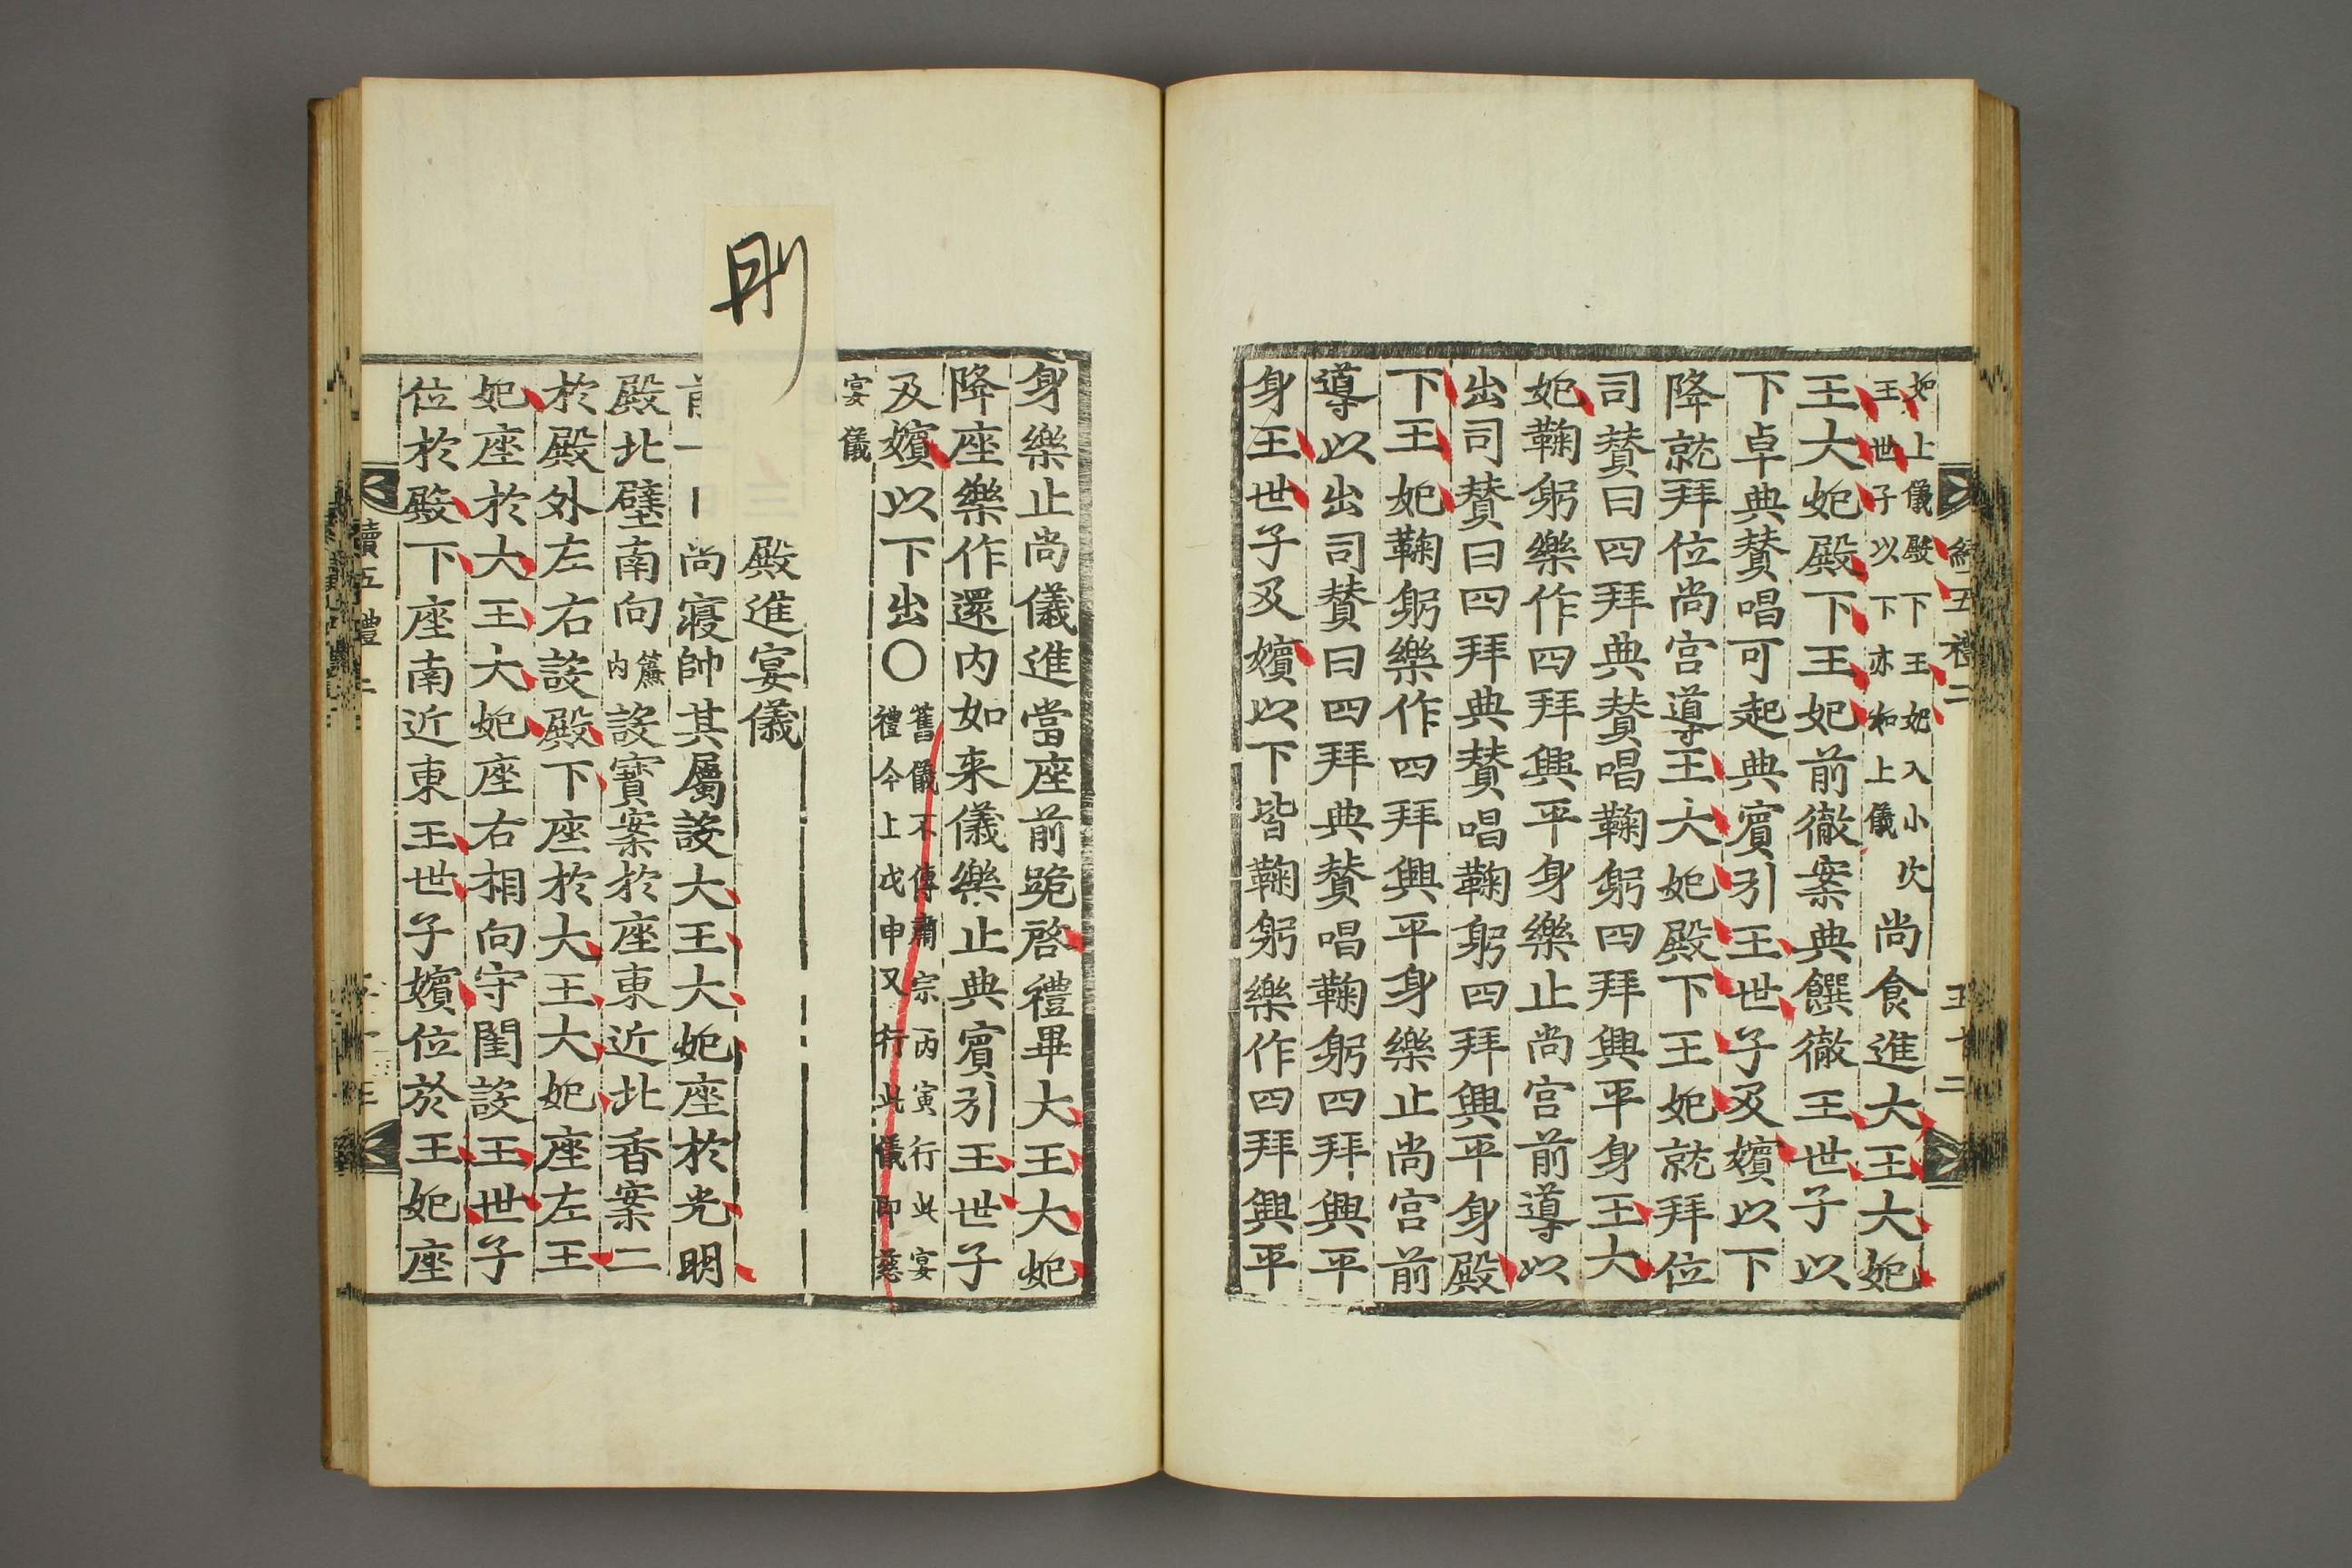 如上儀殿下王妃入小次
王世子以下亦如上儀
尚食進大王大妃
王大妃殿下王妃前徹案典饌徹王世子以
下卓典賛唱可起典賓引王世子及嬪以下
降就拜位尚宮導王大妃殿下王妃就拜位
司賛曰四拜典賛唱鞠躬四拜興平身王大
妃鞠躬樂作四拜興平身樂止尚宮前導以
出司賛曰四拜典賛唱鞠躬四拜興平身殿
下王妃鞠躬樂作四拜興平身樂止尚宮前
導以出司賛曰四拜典賛唱鞠躬四拜興平
身王世子及嬪以下皆鞠躬樂作四拜興平
身樂止尚儀進當座前跪啓禮畢大王大妃
降座樂作還内如来儀樂止典賓引王世子
及嬪以下出〇
舊儀不傳肅宗丙寅行此宴
禮今上戊申又行此儀即慈
宴儀
刪
殿進宴儀
尚寢帥其屬設大王大妃座於光明
殿北壁南向
簾
内
設寶案於座東近北香案二
於殿外左右設殿下座於大王大妃座左王
妃座於大王大妃座右相向守閨設王世子
位於殿下座南近東王世子嬪位於王妃座
續五禮二